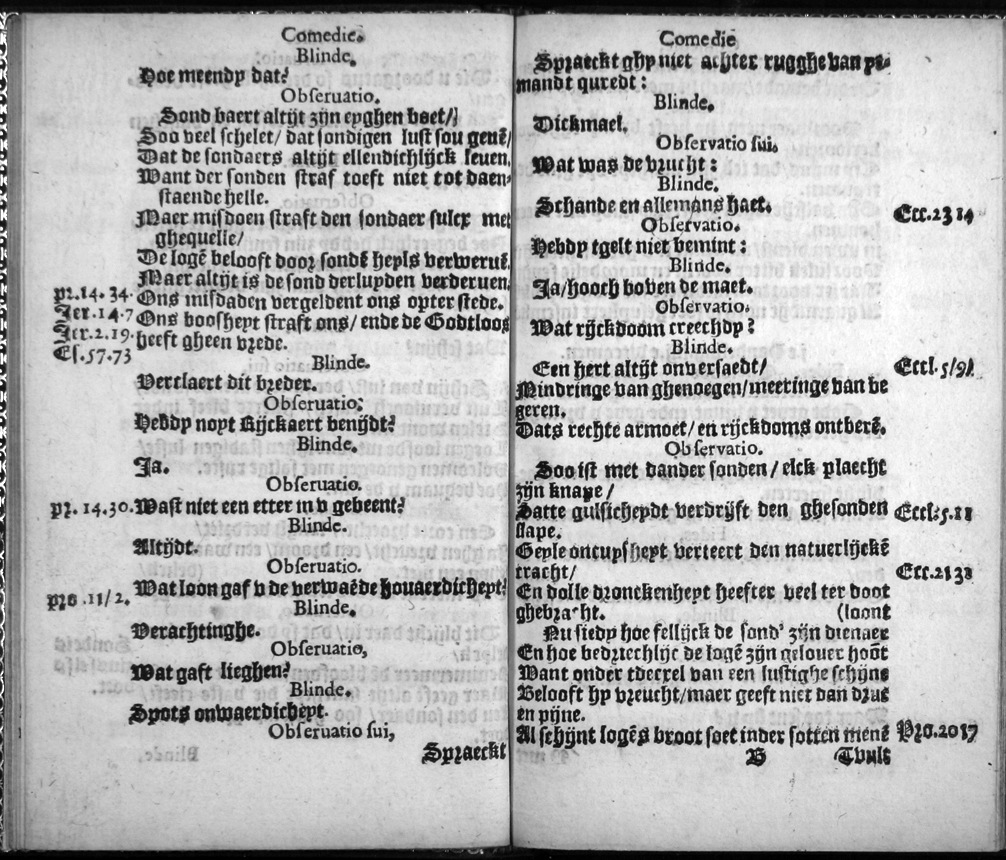 Comedie.
Blinde.
Hoe meendy dat?
Obseruatio.
Sond baert altijt zijn eyghen boet/
Soo veel schelet/ dat sondigen lust sou genē/
Dat de sondaers altijt ellendichlijck leuen,
Want der sonden straf toeft niet tot daen-
staende helle.
Maer misdoen straft den sondaer sulcx met
ghequelle/
De logē belooft door sondē heyls verweruē.
Maer altijt is de sond der luyden verderuen.
pr.14.34. Ons misdaden vergeldent ons opter stede.
Jer.14.7 Ons boosheyt straft ons/ ende de Godtloos
Jer.2.19. heeft gheen vrede.
Es.57.73
Blinde.
Verclaert dit breder.
Obseruatio.
Hebdy noyt Rijckaert benijdt?
Blinde.
Ja.
Obseruatio.
pr. 14.30. Wast niet een etter in v gebeent?
Blinde.
Altijdt.
Obseruatio.
pro .11/2. Wat loon gaf v de verwaēde houaerdicheyt?
Blinde.
Verachtinghe.
Obseruatio,
Wat gaft lieghen?
Blinde.
Spots onwaerdicheyt.
Obseruatio sui,
Spraeckt
Comedie
Spraeckt ghy niet achter rugghe van ye-
mandt quredt:
Blinde.
Dickmael.
Obseruatio sui.
Wat was de vrucht:
Blinde.
Schande en allemans haet. Ecc.23 14
Obseruatio.
Hebdy tgelt niet bemint:
Blinde.
Ja/hooch boven de maet.
Obseruatio.
Wat rijckdoom creechdy?
Blinde.
Een hert altijt onversaedt/ Eccl.5/9/.
Mindringe van ghenoegen/meeringe van be
geren.
Dats rechte armoet/en rijckdoms ontberē.
Obseruatio.
Soo ist met dander sonden/elck plaecht
zijn knape/
Satte gulsicheydt verdrijft den ghesonden Eccl.5.11
slape.
Geyle oncuysheyt verteert den natuerlijckē
cracht/ Ecc.2132
En dolle dronckenheyt heefter veel ter doot
ghebracht. (loont
Nu siedy hoe fellijck de sond' zijn dienaer
En hoe bedriechlijc de logē zijn gelouer hoōt
Want onder tdecxel van een lustighe schijne
Belooft hy vreucht/maer geeft niet dan druc
en pijne.
Al schijnt logēs broot soet inder sotten mēnē Pro.2017
B Tvult